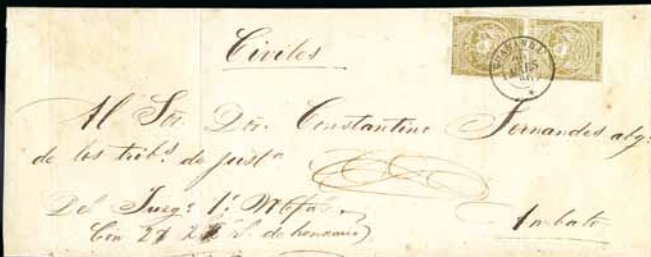 Civiles
Al Sor. Dor. Constantino Fernandes abg.
de los tribs. de justa
Del Juzgo 1º
Con 27 de honorario)
Ambato